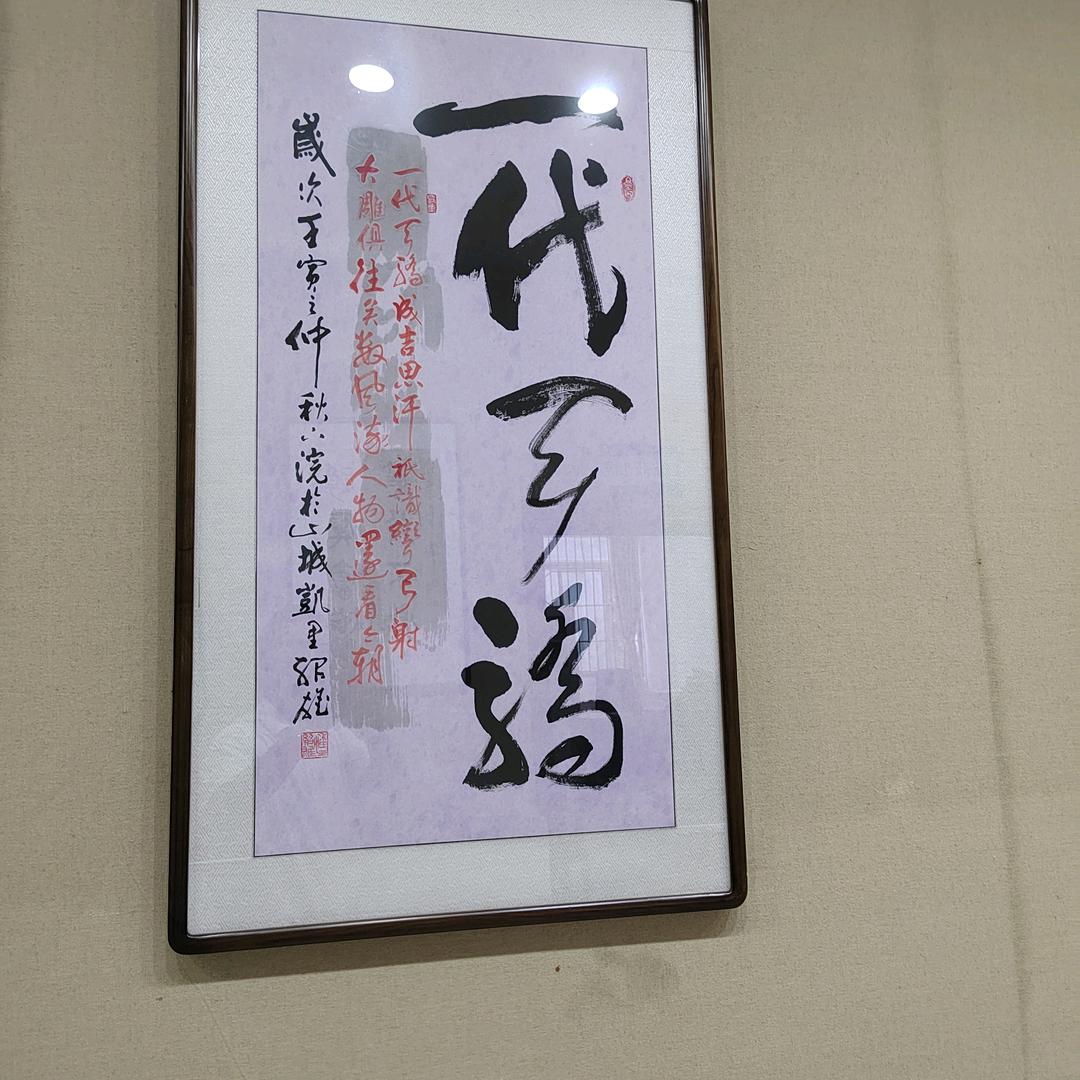 一代天骄
一代天骄成吉思汗祇識彎弓射
大雕俱往矣数风流人物還看今朝
歳次壬寅之仲秋六浣於山城凱里